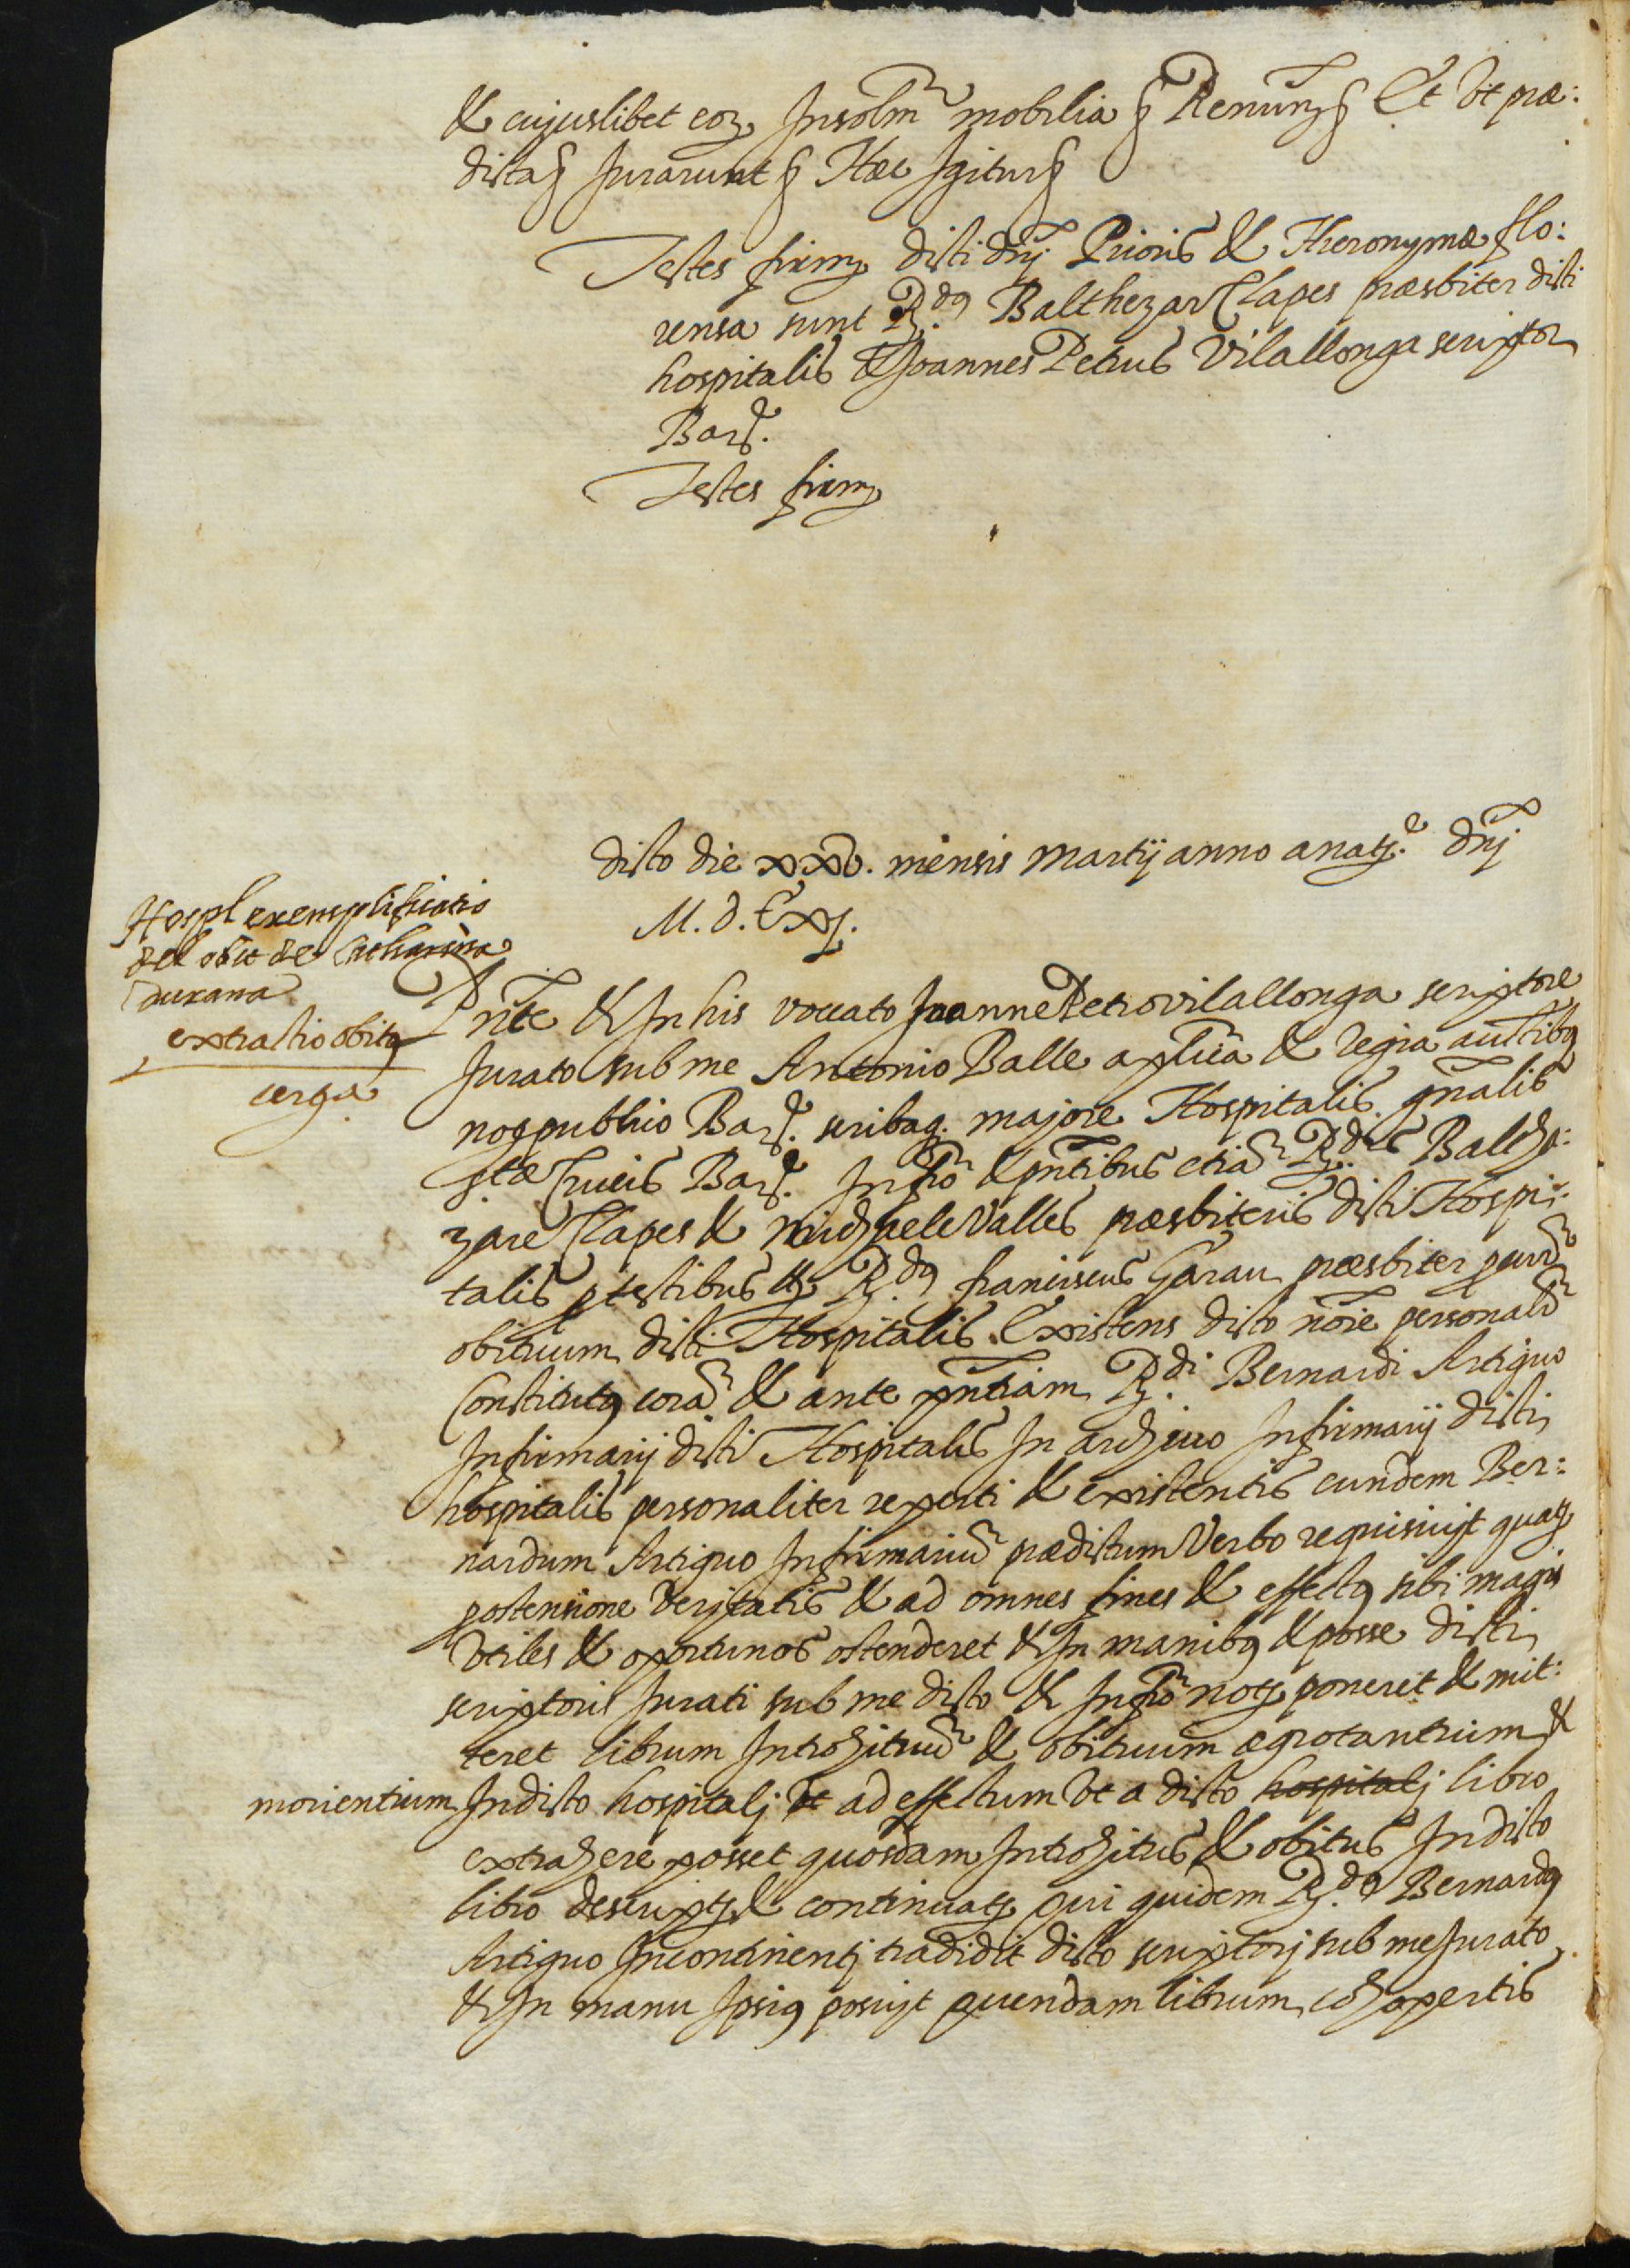 & cujuslibet eoꝝ Insolm̃ mobilia § Renunꝫ § Et Ut præ:
dicta § Jurarunt § Hæc Igitur §
Testes firmꝫ dicti dnj̃ Prioris & Hieronymæ flo:
rensa sunt R.dus Balthezar Clapes præsbiter dicti
hospitalis & Joannes Petrus Vilallonga scriptor
Barꝫ.
Testes firmꝫ
dicto die xxv. mensis martij anno a natꝫ.e dnj̃
M.d.Lxj.
Hospl exemplificatio
del obit de Catharina
durana
extractio obitus
serga
Pn̄te & In his voccato Joanne Petro vilallonga scriptore
Jurato sub me Antonio Balle aplica & regia autᵗibꝫ
noꝫ publico Barꝫ. scribaqꝫ. majore Hospitalis gnalis
s.tæ Crucis Barꝫ. Infrõ & pn̄tibus etiã R.dis Baltha:
zare Clapes & michaele Valles præsbiteris dicti Hospi:
talis p testibus &ꝫ R.dus franciscus Garau præsbiter
obituum dicti Hospitalis Existens dicto nõie personalr̃
Constitutus corã & ante pn̄tiam R.di Bernardi Artiguo
Infirmarij dicti Hospitalis In archivo Infirmarij dicti
hospitalis personaliter reperti & existentis eundem Ber:
nardum Artiguo Infirmariũ prædictum Verbo requisivit quatꝫ
p ostensione Veritatis & ad omnes fines & effectus sibi magis
Utiles & oportunos ostenderet & In manibus & posse dicti
scriptoris Jurati sub me dicto & Infrõ notꝫ poneret & mit:
teret librum Introhituũ & obituum ægrotantium &
morientium In dicto hospitalj ut ad effectum Ut a dicto hospitalj libro
extrahere posset quosdam Introhitus & obitus In dicto
libro descriptꝫ & continuatꝫ qui quidem R.dus Bernardus
Artiguo Incontinentj tradidit dicto scriptorj sub me Jurato
& In manu Ipsius posuit quendam librum cohopertis